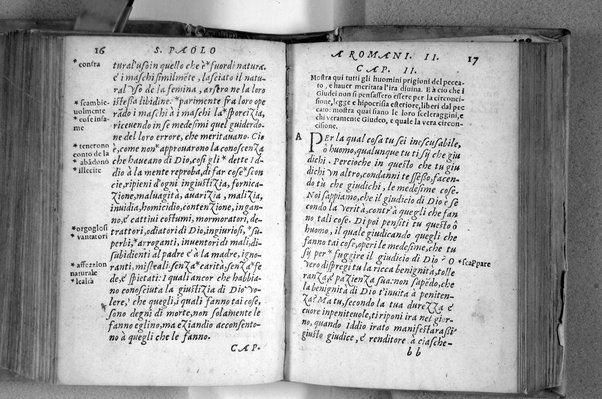 16 S. PAOLO
*contra
*scambie-
uolmente
*cose infa-
me
*tenerono
conto de la
*abādonò
*illecite
*orgogliosi
*vantatori
*affezzion
naturale
*lealtà
tural' uso in quello che è *fuor di natura.
e i maschi similmēte, lasciato il natu-
ral' uso de la femina, arsero ne la loro
istessa libidine: *parimente fra loro ope
rādo i maschi à i maschi la *sporcizia,
riceuendo in se medesimi quel guiderdo-
ne del loro errore, che meritauano. Cio
è, come non *approuarono la conoscenza
che haueano di Dio, così gli *dette Id-
dio à la mente reproba, di far cose *scon
cie, ripieni d'ogni ingiustizia, fornica-
zione, maluagità, auarizia, malizia,
inuidia, homicidio, contenzione, ingan-
no, e cattiui costumi, mormoratori, de-
trattori, odiatori di Dio, ingiuriosi, *su-
perbi, *arroganti, inuentori di mali, di-
subidienti al padre e à la madre, igno-
ranti, misleali, senza *carità, senza *fe
de, e spietati: I quali ancor che habbia-
no conosciuta la giustizia di Dio vo-
lere, che quegli, i quali fanno tai cose,
sono degni di morte, non solamente le
fanno eglino, ma eziandio acconsento-
no à quegli che le fanno.
CAP.
A ROMANI. II. 17
CAP. II.
Mostra qui tutti gli huomini prigioni del pecca-
to, e hauer meritata l'ira diuina. Et à cio che i
Giudei non si pensassero essere per la circonci-
sione, legge e hipocrisia esteriore, liberi dal pec
cato: mostra quai siano le loro sceleraggini, e
chi veramente Giudeo, e quale la vera circon-
cisione.
A PEr la qual cosa tu sei inescusabile,
ò huomo, qualunque tu ti sij che giu
dichi. Percioche in questo che tu giu
dichi vn altro, condanni te stesso, facen-
do tu che giudichi, le medesime cose.
Noi sappiamo, che il giudicio di Dio è se
condo la verità, contr'à quegli che fan
no tai cose. Di poi pensi tu questo ò
huomo, il quale giudicando quegli che
fanno tai cose, operi le medesime, che tu
sij per *fuggire il giudicio di Dio? O *scappare
vero dispregi tu la ricca benignità, tolle
ranza, e pazienza sua: non sapēdo, che
la benignità di Dio t'inuita à peniten-
za? Ma tu, secondo la tua durezza e
cuore inpenitente, ti riponi ira nel gior-
no, quando Iddio irato manifestarà il
giusto giudice, e renditore à ciasche-
b b